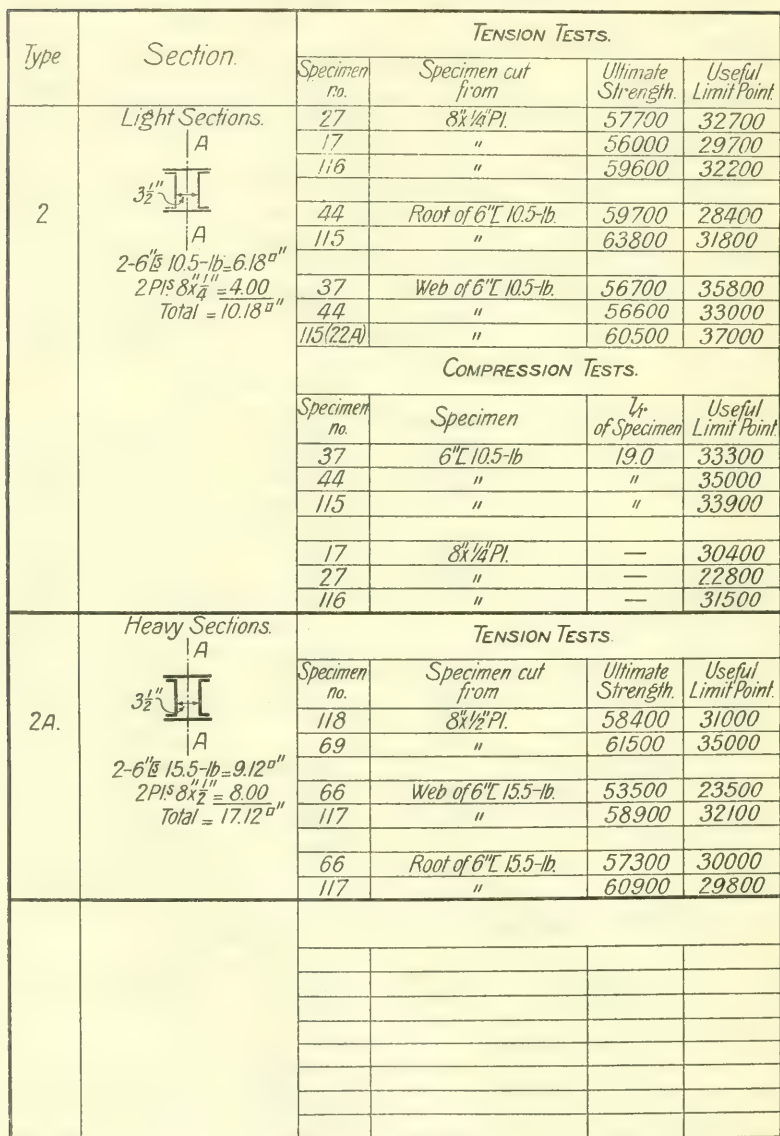 Type Section. TENSION TESTS.
Specimen no. Specimen cut from Ultimate Strength. Useful Limit Point.
2
Light Sections.
A
3½"
A
2-6"[s 10.5-lb=6.18□"
2 Pls 8"x¼"=4.00
Total = 10.18□"
27 8"x¼"Pl. 57700 32700
17 " 56000 29700
116 " 59600 32200
44 Root of 6"[ 10.5-lb. 59700 28400
115 " 63800 31800
37 Web of 6"[ 10.5-lb. 56700 35800
44 " 56600 33000
115(22A) " 60500 37000
COMPRESSION TESTS.
Specimen no. Specimen l/r of Specimen Useful Limit Point.
37 6"[ 10.5-lb 19.0 33300
44 " " 35000
115 " " 33900
17 8"x¼"Pl. — 30400
27 " — 22800
116 " — 31500
2A.
Heavy Sections.
A
3½"
A
2-6"[s 15.5-lb=9.12□"
2 Pls 8"x½" = 8.00
Total = 17.12□"
TENSION TESTS.
Specimen no. Specimen cut from Ultimate Strength. Useful Limit Point.
118 8"x½"Pl. 58400 31000
69 " 61500 35000
66 Web of 6"[ 15.5-lb. 53500 23500
117 " 58900 32100
66 Root of 6"[ 15.5-lb. 57300 30000
117 " 60900 29800